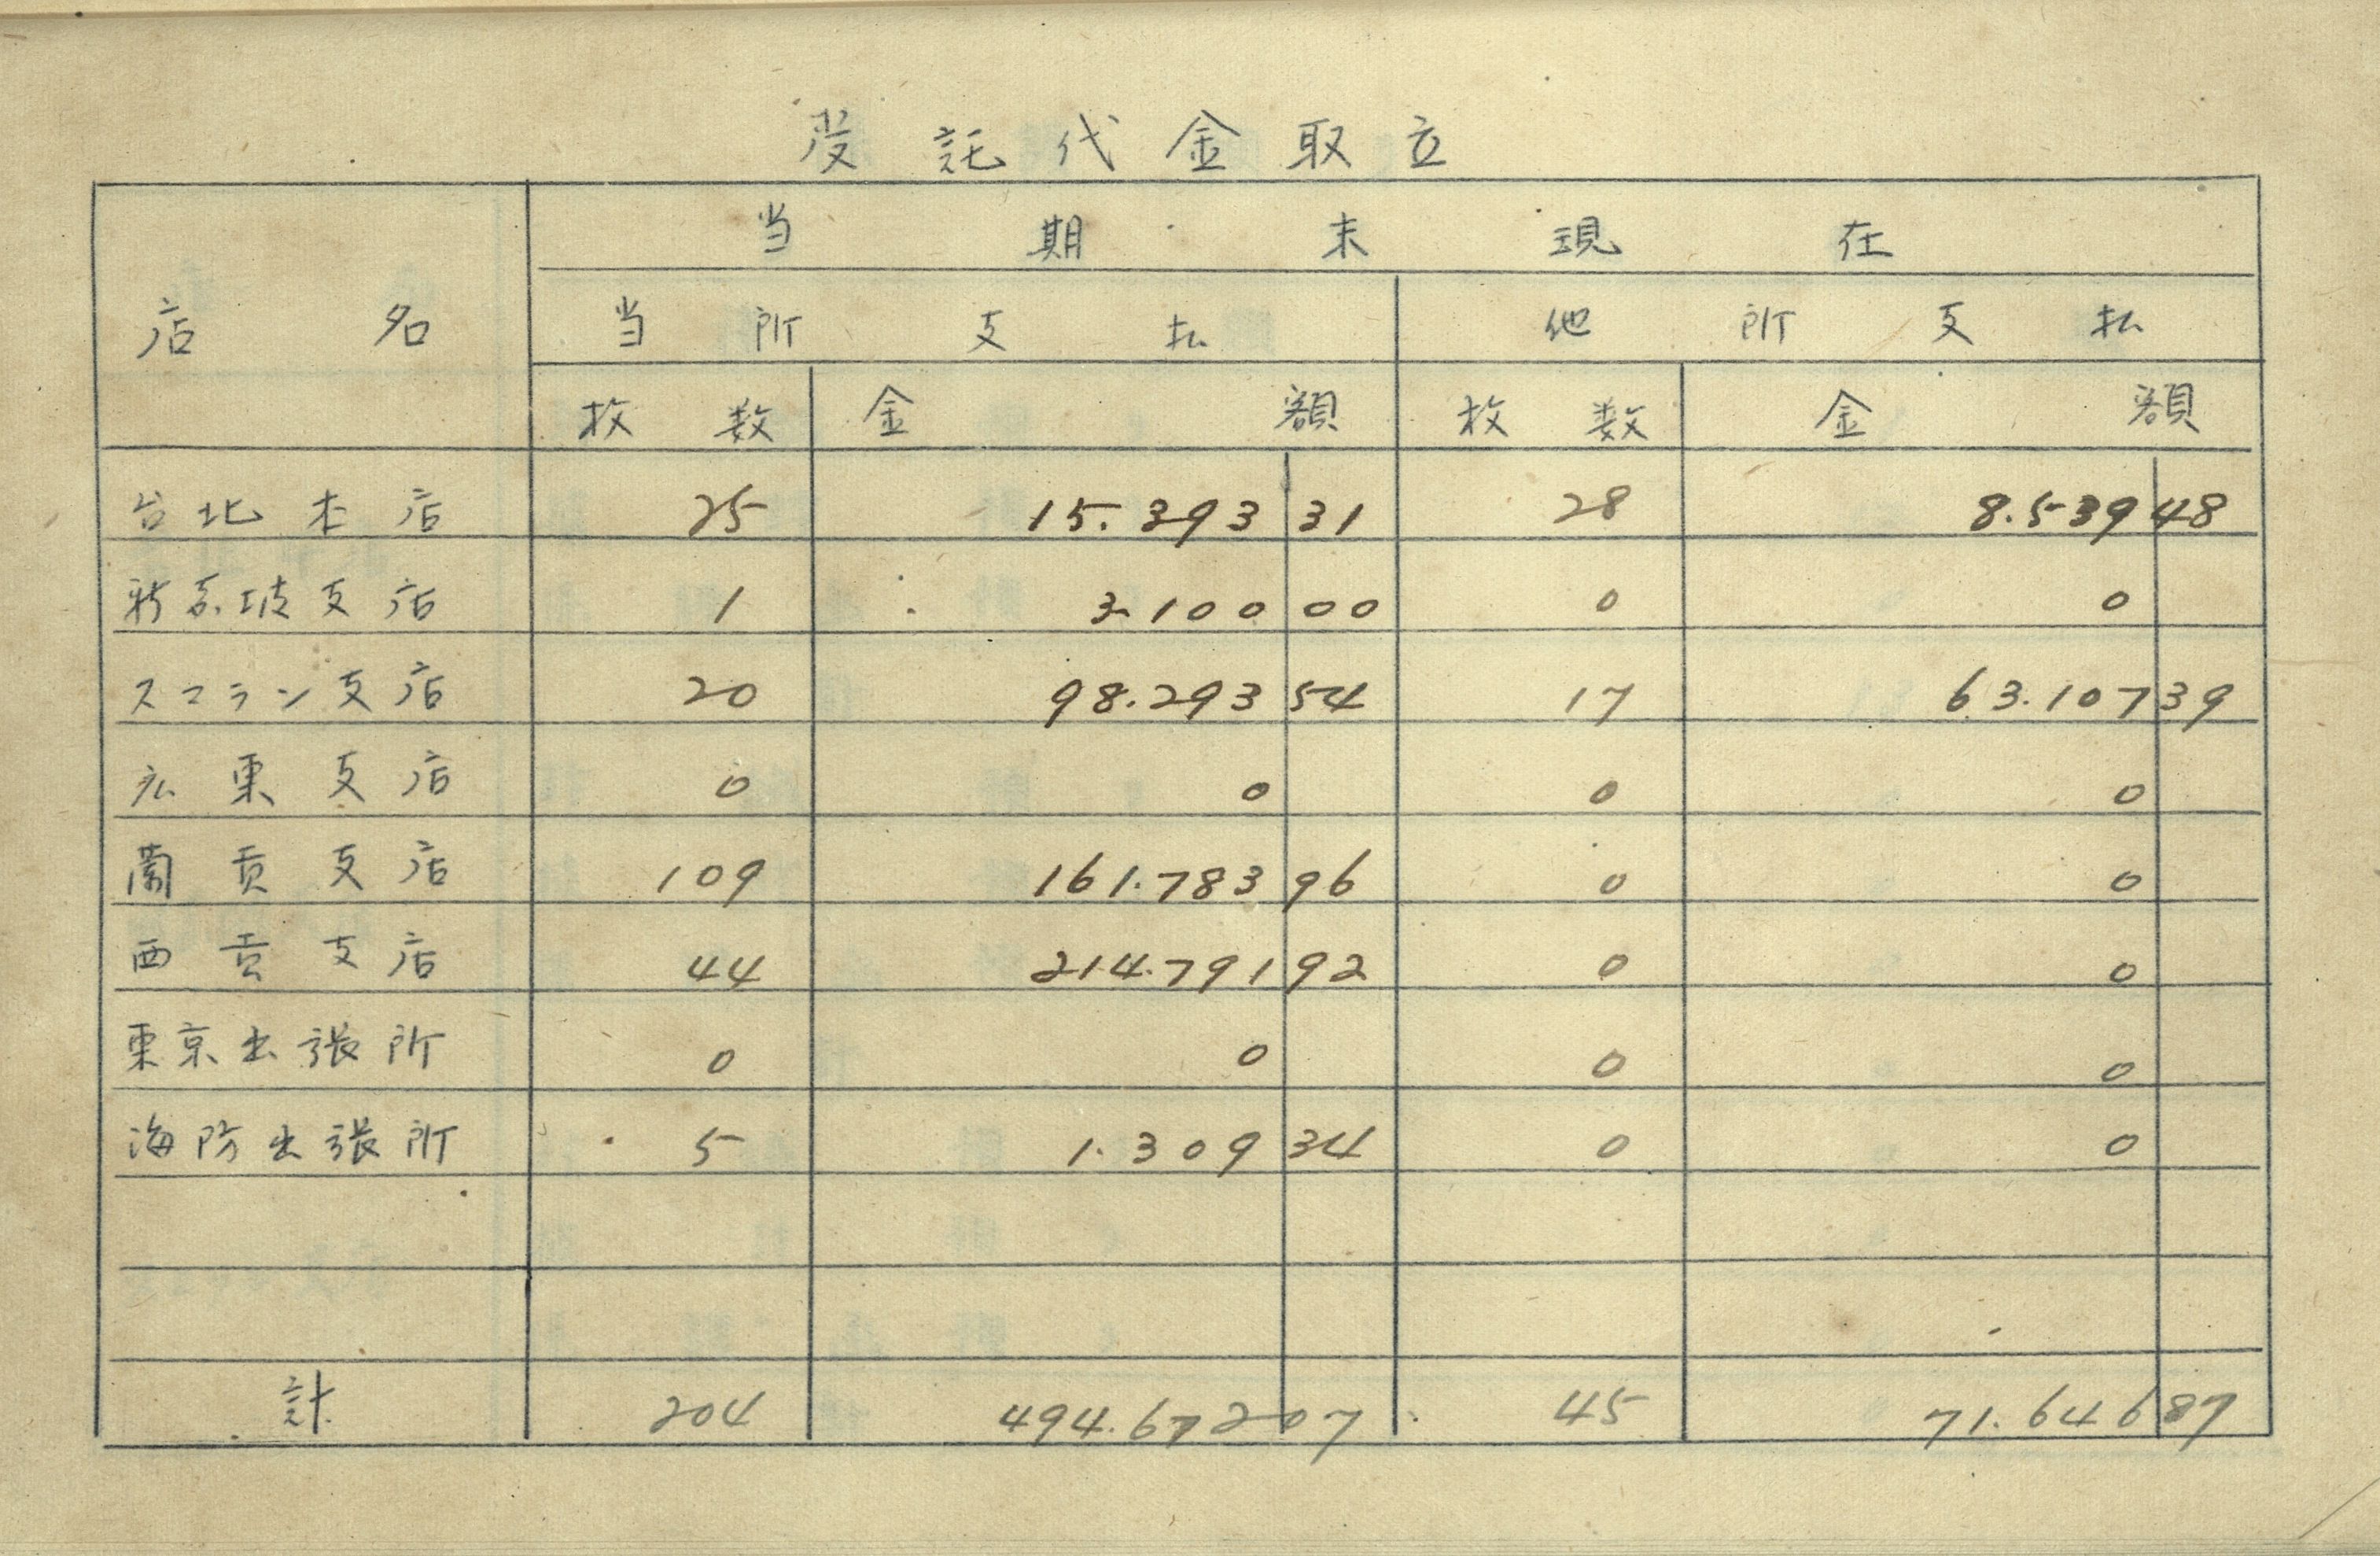 受託代金取立
店名 当期末現在
当所支払 他所支払
枚数 金額 枚数 金額
台北本店 25 15.393 31 28 8.539 48
新嘉坡支店 1 3.100 00 0 0
スマラン支店 20 98.293 54 17 63.107 39
広東支店 0 0 0 0
蘭貢支店 109 161.783 96 0 0
西貢支店 44 214.791 92 0 0
東京出張所 0 0 0 0
海防出張所 5 1.309 34 0 0
計 204 494.672 07 45 71.646 87